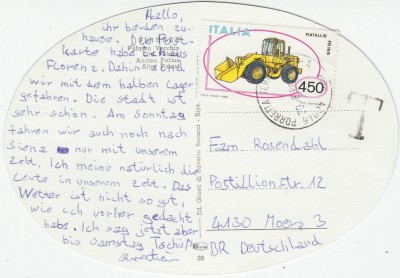 Hallo,
ihr beiden zu-
hause. Die Post-
karte habe ich aus
Florenz. Dahin sind
wir mit dem halben Lager
gefahren. Die stadt ist
sehr schön. Am Sonntag
fahren wir auch noch nach
Siena nur mit unserem
zelt. Ich meine natürlich die
Leute in unserem zelt. Das
Wetter ist nicht so gut,
wie ich vorher gedacht
habe. Ich sag jetzt aber
bis samstag Tschüß
Palazzo Vecchio
Ancien Palais
ITALIA
FIATALLIS
FR 15B
450
PORRETTA
T
Fam. Rosendahl
Postillionstr. 12
4130 Moers 3
BR Deutschland
28